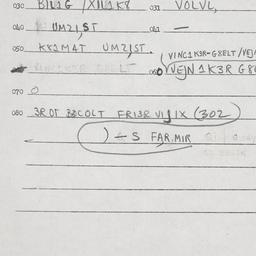 030 BIL1G /XII1K8 031 VOLVL,
040 UM21ST 041 —
050 KK1M4T UM21ST.
VINC1K3R-G8ELT/VEJ
060 VEJN 1K3R G8
070 0
080 3ROT B3COLT FRI3R VIJIX (302
) – S FAR.MIR